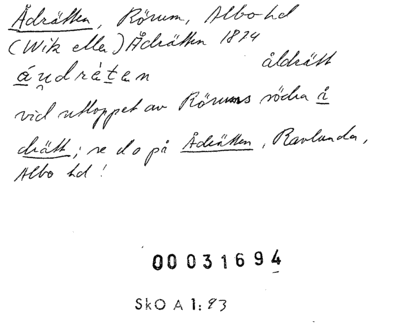 Ådrätten, Rörum, Albo hd
(Wik eller) Ådrätten 1874
åndräten åldrätt
vid utloppet av Rörums södra å
drätt; se do på Ådrätten, Ravlunda,
Albo hd!
00031694
SkO A 1:93